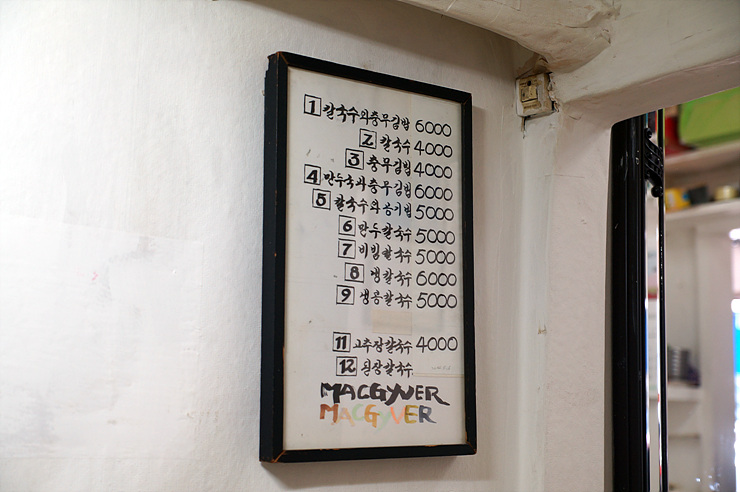 1 칼국수와충무김밥 6000
2 칼국수 4000
3 충무김밥 4000
4 만두국과충무김밥 6000
5 칼국수와공기밥 5000
6 만두칼국수 5000
7 비빔칼국수 5000
8 냉칼국수 6000
9 냉콩칼국수 5000
11 고추장칼국수 4000
12 된장칼국수
MACGYVER
MACGYVER